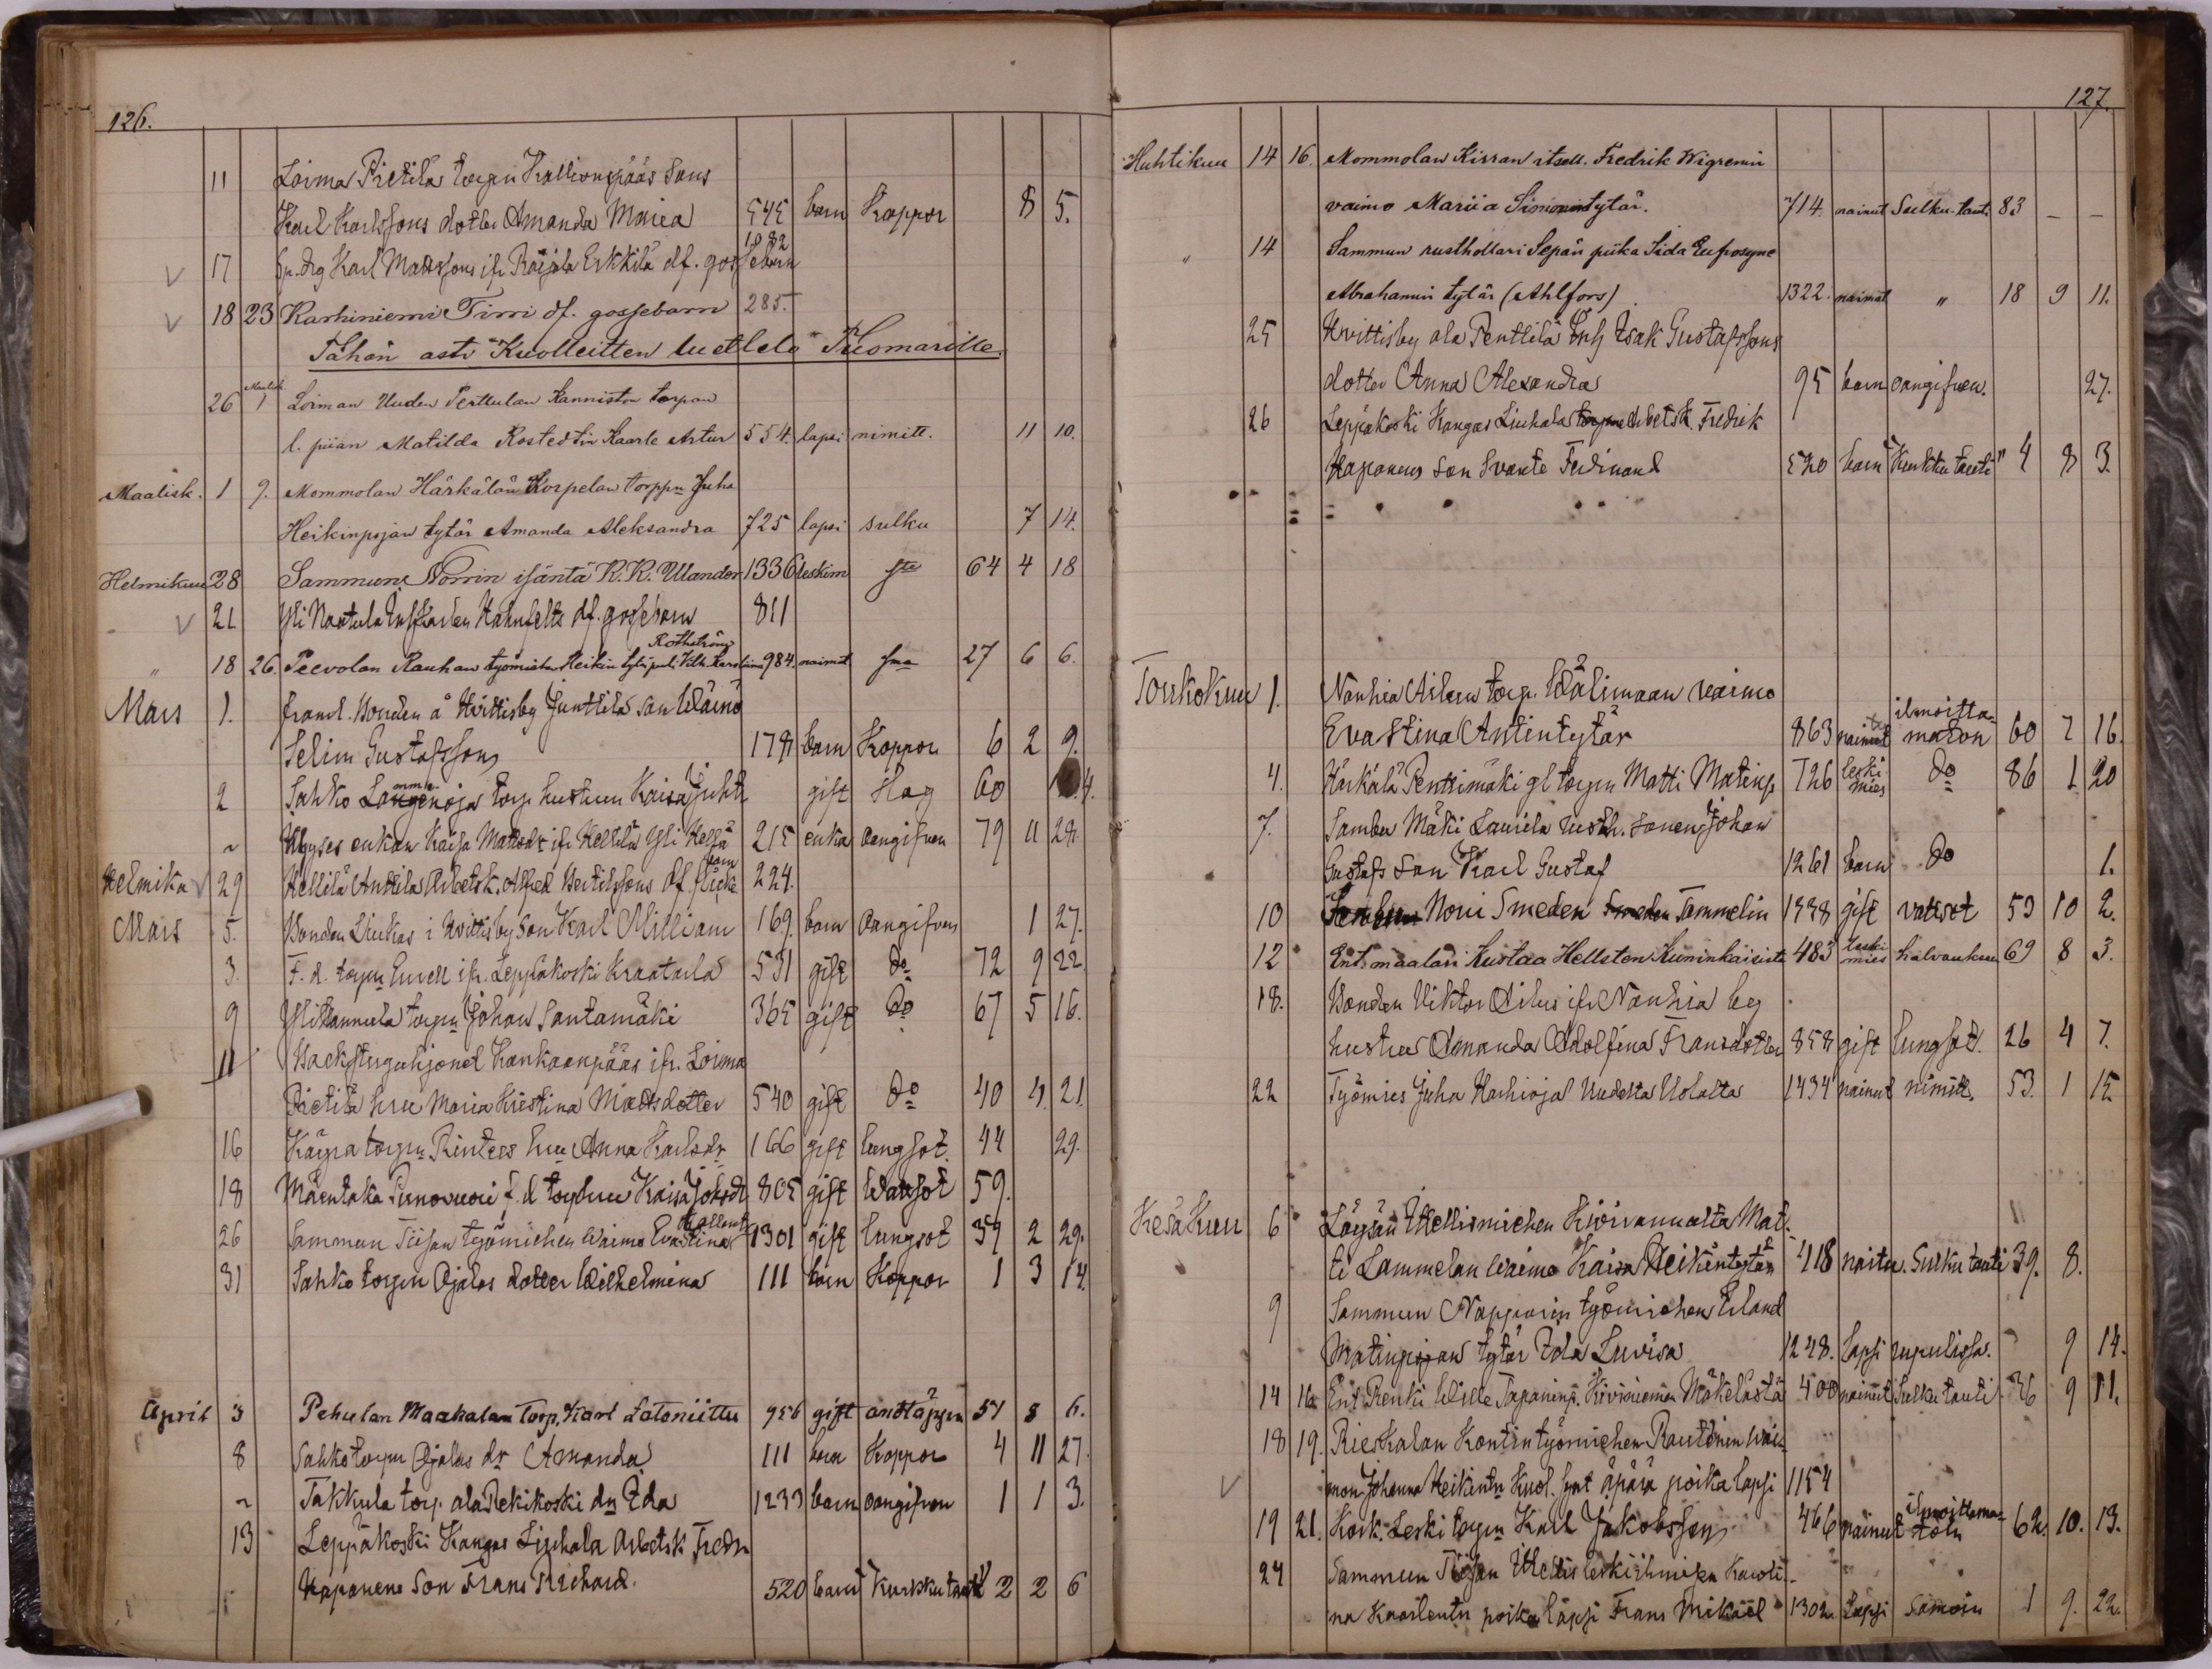 126.
11 Loima Pietilä torpn Kallionpääs Sons
Karl Karlssons dotter Amanda Maria 545 barn Koppor 8 5.
17 Sp. drg Karl Mattssons ifr. Raijala Erkkilä df. gossebarn 1082
18 23 Karhiniemi Tirri df. gossebarn 285.
Tähän asti Kuolleitten luettelo Tuomarille.
26 Maalisk. 1 Loiman Uuden Perttulan Kanniston torpan
l. piian Matilda Rostedtin Kaarle Artur 554. lapsi nimitt. 11 10.
Maalisk. 1 9. Mommolan Härkälän Korpelan torppn Juha
Heikinpojan tytär Amanda Aleksandra 725 lapsi sulku 7 14.
Helmikuu 28 Sammun Norrin isäntä K. K. Ulander 1336 leskim 64 4 18
21 Yli Naatula df. gossebarn 811
" 18 26. Peevolan Rauhan työmiehen Heikin Rothström 984. naimat. 27 6 6.
Mars 1. framl. Bonden å Hvittisby Junttila son Wäinö
Selim Gustafsson 178 barn Koppor 6 2 9.
2 Sahko torp hustrun Kaisa gift Hag 60
~ enkan Kaisa Matsdr ifr Kellilä Yli Kellä 215 enka oangifven 79 11 28.
Helmik 29 Kellilä Anttila Arbetsk. Alfred Bertilssons df. flicke barn 224.
Mars 5. Bonden Liukas i Hvittisby Son Karl William 169. barn oangifven 1 27.
3. F. d. torpn ifr. Leppäkoski Kraatarla 531 gift do 72 9 22
9 Ylistannula torpn Johan Santamäki 365 gift do 67 5 16.
11 Backstuguhjonet Kankaanpääs ifr. Loima
Pietilä hru Maria Kristina Mattsdotter 540 gift do 40 4. 21.
16 Käyrä torpn Rinters hru Anna Karlsdr 166 gift lungsot. 44 29.
18 Mäentaka Pirnovuori f. d torphru Kaisa 805 gift Watsot 59.
26 Sammun Tiisan työmiehen Waimo Evastina 1301 gift lungsot 39 2 29.
31 Sahko torpn Ojalas dotter Wilhelmina 111 barn Koppor 1 3 14.
April 3 Pehulan Maakalan Torp. Karl Latoniittu 956 gift andtäppn 51 8 6.
8 Sahko torpn Ojalas dr Amanda 111 barn Koppor 4 11 27.
~ Takkula torp. ala Rekikoski dn Ida 1233 barn oangifven 1 1 3.
13 Leppäkoski Kangas Liuhala Arbetsk Fredr
Haponens Son Frans Richard. 520 barn Kurkku tauti 2 2 6
127.
Huhtikuu 14 16. Mommolan Kirran itsell. Fredrik Wigrenin
vaimo Mariia Simonintytär. 714. nainut Sulku-taut. 83 – –
" 14 Sammun rusthollari Sepän piika Iida Eufrosyne
Abrahamin tytär (Ahlfors) 1322. naimat. " 18 9 11.
25 Hvittisby ala Penttilä Inh Isak Gustafssons
dotter Anna Alexandra 95 barn oangifven. 27.
26 Leppäkoski Kangas Liuhala Arbetsk. Fredrik
Haponens son Svante Ferdinand 520 barn "Kurkku tauti" 4 8 3.
Toukokuu 1. Nanhia Ailun torp. Wälimaan vaimo
Eva Stina Antintytär 863 nainut ilmoittamaton 60 7 16.
4. Härkälä Penttimäki gl torpn Matti Matinp. 726 leskimies do 86 1 20
7. Sambu Mäki Laurila rusth. sonens Johan
Gustafs son Karl Gustaf 1261 barn do 1.
10 Nori Smeden Tammelin 1338 gift vatsot 59 10 2.
12 Ent. maalari Kustaa Hellsten Kuninkaisista 483 leskimies halvauksen 69 8 3.
18. Bonden Viktor Ailus ifr Nanhia by
hustru Amanda Adolfina Fransdotter 858 gift lungsot. 26 4 7.
22 Työmies Juha Harhioja Uudesta Uolatta 1434 nainut nimitt. 53. 1 15
Kesäkuu 6 Löysän Itsellismiehen Mat-
ti Lammelan Waimo Kaisa Heikintytär 418 naitu. Sulku tauti 39. 8.
9 Sammun Napparin työmiehen Erland
Matinpojan tytär Ida Luvisa 1248. lapsi rupulissa. 9 14.
14 16 Ent. Renki Wille Tapaninp. Kiviniemen Mäkelästä 400 nainut Sulku tauti 36 9 11.
18 19. Rieskalan Kontin työmiehen Rautonin wai-
mon Johanna Heikintr Kuol. synt äpärä poika lapsi 1154
19 21. Kork. Leski torpn Karl Jakobsson 466 nainut ilmoittama-toin 62. 10. 13.
24 Sammun Tiisan Itsellis leski ihmisen Karoli-
na Kaarlentr poika lapsi Frans Mikael 1302. Lapsi Samoin 1 9. 22.